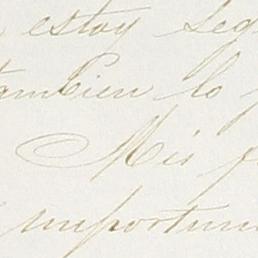 estoy seg
tambien lo
Mis
importun